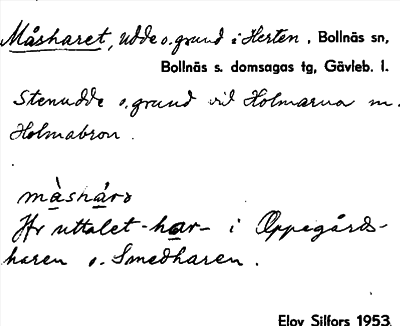 Måsharet, udde o. grund i Herten, Bollnäs sn,
Bollnäs s. domsagas tg, Gävleb. l.
Stenudde o. grund vid Holmarna m.
Holmabron.
måshårə
Jfr uttalet -har- i Oppegårds-
haren o. Smedharen.
Elov Silfors 1953.